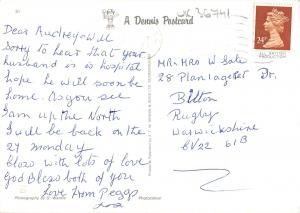 A Dennis Postcard
UK 36741
24P
Dear Audrey + Will
Sorry to hear that your
husband is in hospital
hope he will soon be
home. As you see
I am up the North
I will be back on the
27 monday
Bless with lots of love
God Bless both of you
Love From Peggy
xox
MR. MRS W Gale
28 Plantagenet Dr.
Bilton
Rugby
Warwickshire
CV22 6LB
Photography by